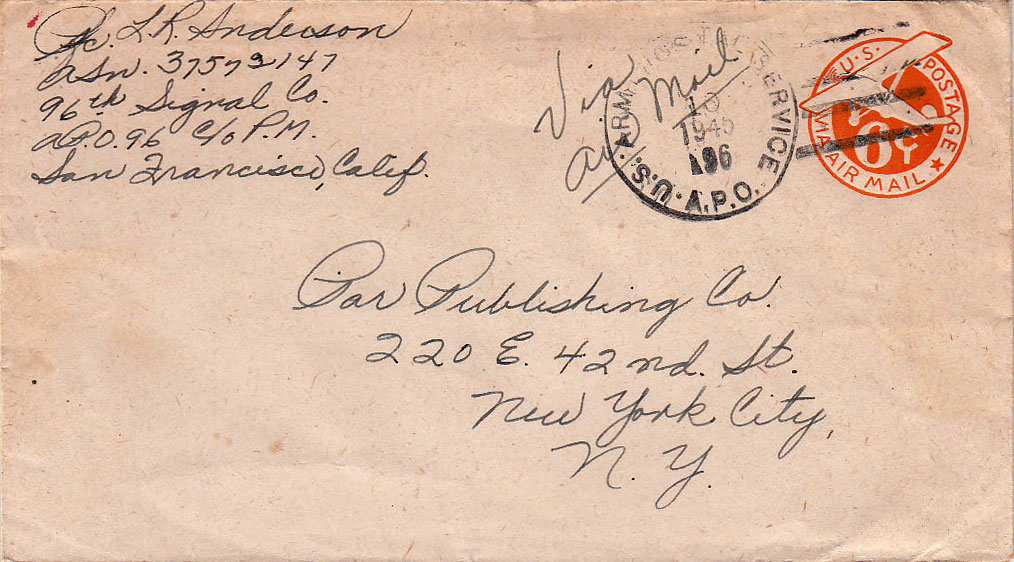 Pfc. L.R. Anderson
ASn. 37572147
96th Signal Co.
A.P.O. 96 c/o P.M.
San Francisco, Calif.
Via
Air Mail
U.S. ARMY SERVICE
13
1945
96
A.P.O.
U.S. POSTAGE
6¢
VIA AIR MAIL
Par Publishing Co.
220 E. 42nd. St.
New York City,
N.Y.